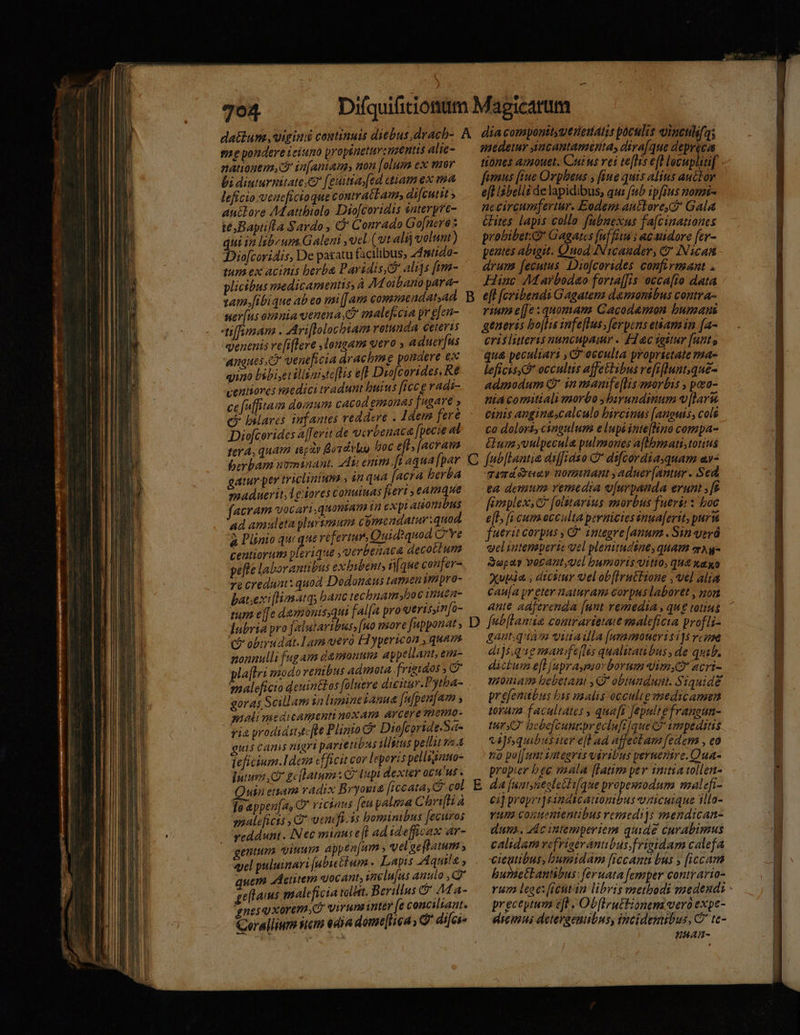 704 Disquisitionum Magicarum
datum, viginti continuis diebus, drach-
me pondere ieiuno propinetur: mentis alie-
nationem, & insaniam, non solum ex mor
bi diuturnitate, & sæuitia, sed etiam ex ma
leficio, veneficioque contractam, discutit,
auctore Matthiolo Dioscoridis interpre-
te, Baptista Sardo, & Conrado Gesnero:
qui in librum Galeni, vel (vt alij volunt)
Dioscoridis, De paratu facilibus, Antido-
tum ex acinis herbæ Paridis, & alijs sim-
plicibus medicamentis, à Moibano para-
tam, sibique ab eo missam commendat, ad
uersus omnia venena, & maleficia præsen-
tissimam. Aristolochiam rotunda ceteris
venenis resistere, longam vero, aduersus
angues, & veneficia drachmæ pondere ex
vino bibi, et illini, testis est Dioscorides. Re
centiores medici tradunt huius siccę radi-
ce suffitam domum cacodæmonas fugare,
& hilares infantes reddere. Idem fere
Dioscorides asserit de verbenaca specie al-
tera, quam ἱερὰν βοτάνην hoc est, sacram
herbam nominant. Ait enim, si aqua spar
gatur per triclinium, in qua sacra herba
maduerit, lętiores conuiuas fieri, eamque
sacram vocari, quoniam in expiationibus
ad amuleta plurimum commendatur: quod
à Plinio qui quę refertur. Quid? quod & re
centiorum plerique, verbenaca decoctum
peste laborantibus exhibent, ijsque confer-
re credunt: quod Dodonæus tamen impro-
bat, existimatq; hanc technam, hoc inuen-
tum esse dæmonis, qui falsa pro veris, insa-
lubria pro salutaribus, suo more supponat,
& obtrudat. Iam vero Hypericon, quam
nonnulli fugam dæmonum appellant, em-
plastri modo renibus admota frigidos, &
maleficio deuinctos soluere dicitur. Pytha-
goras Scillam in limine ianuæ suspensam,
mali medicamenti noxam arcere memo-
ria prodidit, teste Plinio & Dioscoride. San-
guis canis nigri parietibus illitus pellit ma
leficium. Idem efficit cor leporis pelle sinuo-
lutum, & gestatum: & lupi dexter oculus.
Quin etiam radix Bryoniæ siccata, & col
lo appensa, & ricinus seu palma Christi à
maleficijs, & veneficijs hominibus securos
reddunt. Nec minus est ad id efficax ar-
gentum viuum appensum, vel gestatum,
vel puluinari subiectum. Lapis Aquilæ,
quem Aetitem vocant, inclusus anulo, &
gestatus maleficia tollit. Berillus & Ma-
gnes vxorem, & virum inter se conciliant.
Corallium item odia domestica, & disci-
A dia componit, venenatis poculis vinculisq;
medetur incantamenta, dirasque depreca
tiones amouet. Cuius rei testis est locuplitis-
simus siue Orpheus, siue quis alius auctor
est libelli de lapidibus, qui sub ipsius nomi-
ne circumfertur. Eodem auctore, & Gala
ctites lapis collo subnexus fascinationes
prohibet: & Gagates suffitu; ac nidore ser-
pentes abigit. Quod Nicander, & Nican-
drum secutus Dioscorides confirmant.
Hinc Marbodæo fortassis occasio data
B est scribendi Gagatem dæmonibus contra-
rium esse: quoniam Cacodæmon humani
generis hostis infestus, serpens etiam in sa-
cris litteris nuncupatur. Hæc igitur sunt,
quæ peculiari, & occulta proprietate ma-
leficijs, & occultis affectibus resistunt: quę-
admodum & in manifestis morbis, pæo-
nia comitiali morbo, hirundinum vstarū
cinis anginæ, calculo hircinus sanguis, cola
co dolori, cingulum e lupi intestino compa-
ctum, vulpeculæ pulmones asthmati, totius
C substantiæ dissidio & discordia, quam ἀν-
τιπάθειαν nominant, aduersantur. Sed
ea demum remedia vsurpanda erunt, si
simplex, & solitarius morbus fuerit: hoc
est, si cum occulta pernicies inuaserit, purū
fuerit corpus, & integre sanum. Sin verò
vel intemperie vel plenitudine, quam πλη-
θώραν vocant, vel humoris vitio, quæ κακο
χυμία, dicitur vel obstructione, vel alia
causa pręter naturam corpus laboret, non
ante adferenda sunt remedia, quę totius
D substantiæ contrarietate maleficia profli-
gant, quam vitia illa summoueris ijs reme
dijs, quę manifestis qualitatibus, de quib.
dictum est supra, morborum vim, & acri-
moniam hebetant, & obtundunt. Siquidē
præsentibus his malis occultę medicamen
torum facultates, quasi sepultę frangun-
tur, & hebescunt: pręclusisque & impeditis
vijs, quibus iter est ad affectam sedem, eò
nō possunt integris viribus peruenire. Qua-
propter hęc mala statim per initia tollen-
E da sunt, neglectisque propemodum malefi-
cij proprijs indicationibus vnicuique illo-
rum conuenientibus remedijs mendican-
dum. Ac intemperiem quidē curabimus
calidam refrigerantibus, frigidam calefa
cientibus, humidam siccantibus, siccam
humectantibus: seruata semper contrario-
rum lege: sicut in libris methodi medendi
preceptum est. Obstructionem verò expe-
diemus detergentibus, incidentibus, & te-
nuan-